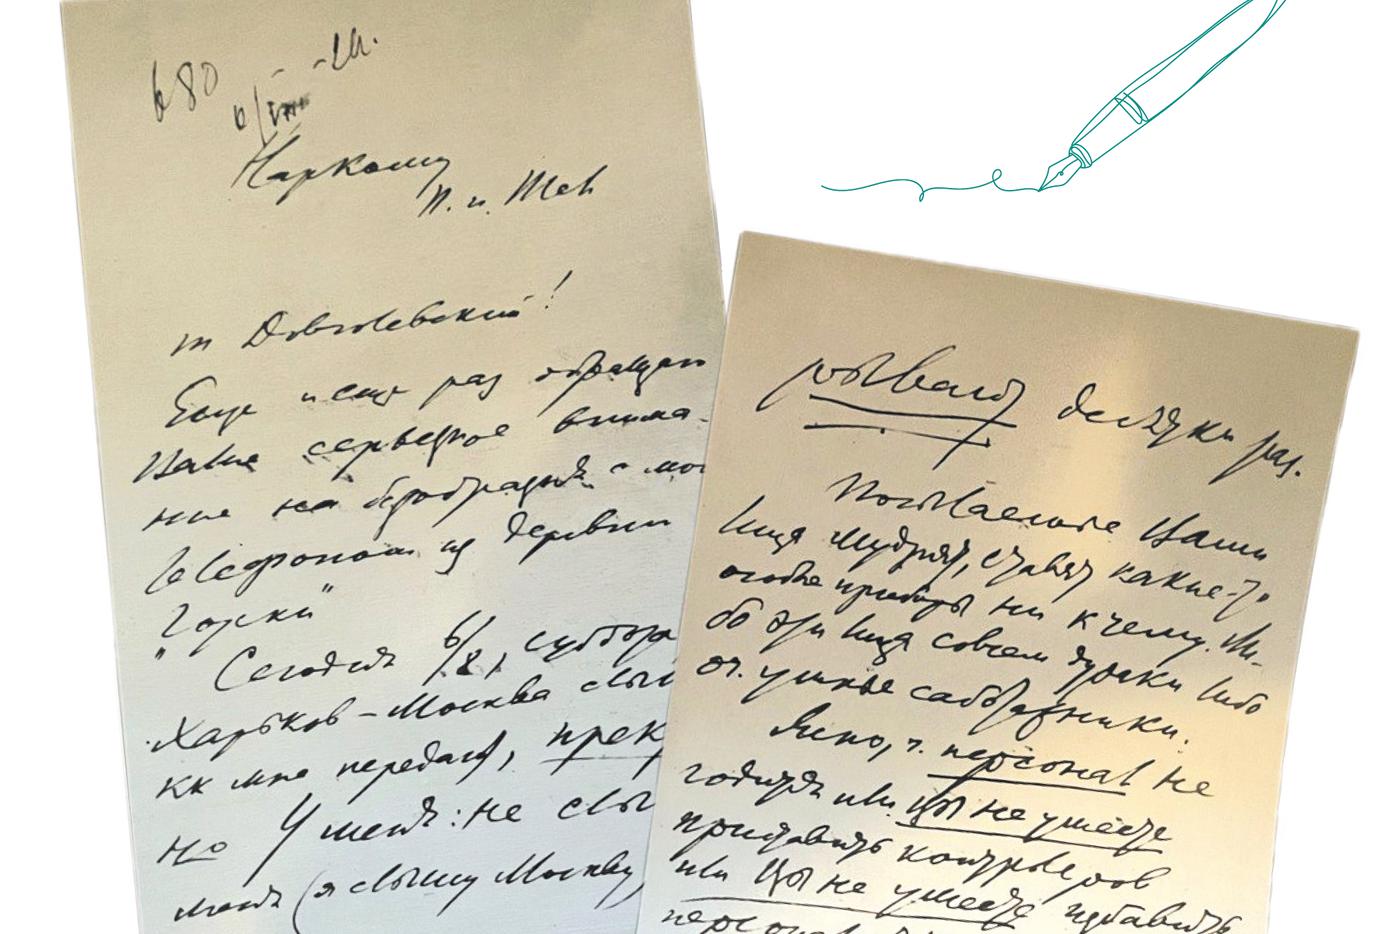 680
6/VIII
Наркому
П. и Тел
т Довголевский!
Еще и еще раз обращаю
Ваше серьезное внима-
ние на безобразия с мои
телефоном из деревни
"Горки"
Сегодня 6/8, суббота
Харьков – Москва слыш
кк мне передают, прек
но У меня: не слы
меня (я слышу Москву,
рывают десятки раз.
Посылаемые Вами
лица мудрят, ставят какие-то
особые приборы ни к чему. Ли-
бо эти лица совсем дураки либо
оч. умные саботажники.
Ясно, ч. персонал не
годится или Вы не умеете
приставить контролеров
или Вы не умеете избавить
персонал